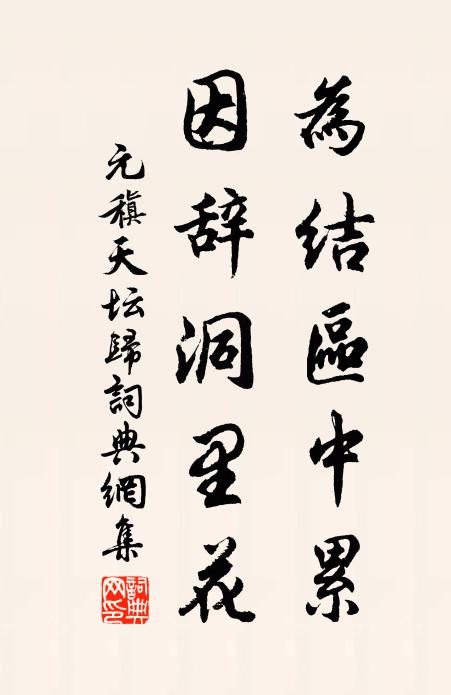 為結區中累
因辞洞里花
元稹天坛歸詞典網集
詞典网印